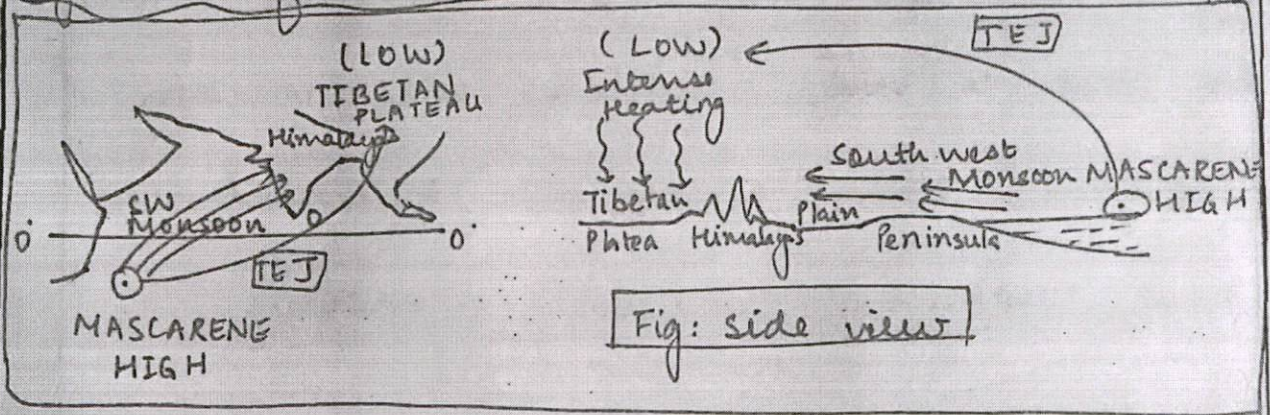 (LOW)
TIBETAN
PLATEAU
Himalayas
SW
Monsoon
0°
0°
TEJ
MASCARENE
HIGH
TEJ
(LOW)
Intense
Heating
South west
Monsoon
MASCARENE
HIGH
Tibetan
Platea
Himalayas
Plain
Peninsula
Fig: side view